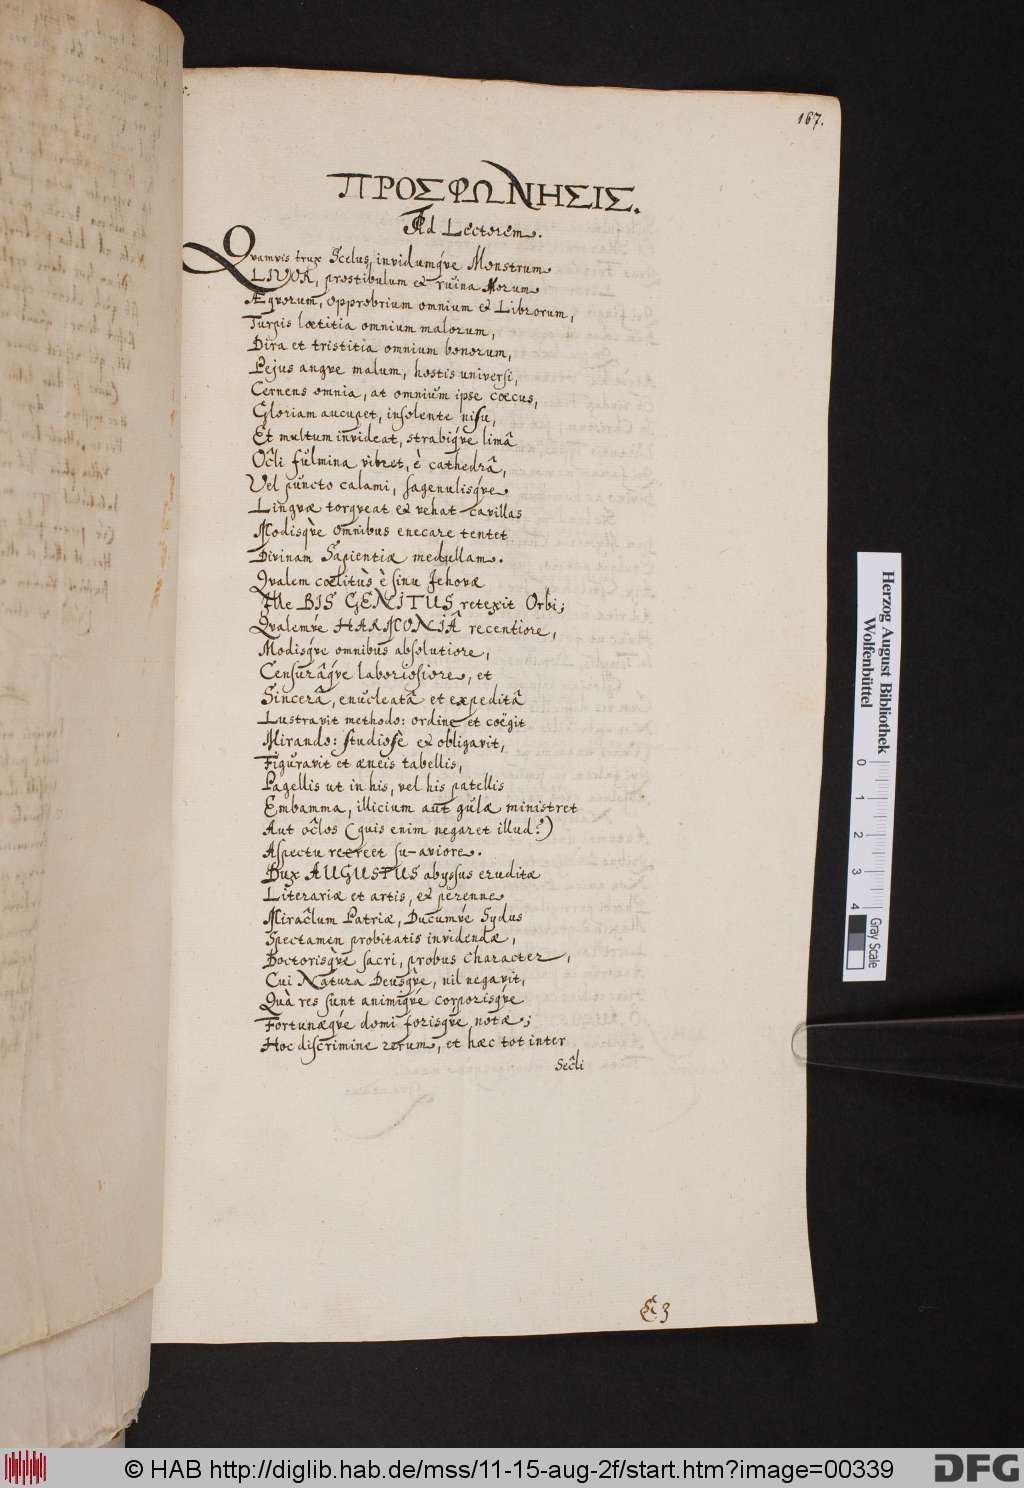 167.
ΠΡΟΣΦΩΝΗΣΙΣ.
Ad Lectorem.
Qvamvis trux Scelus, invidumq́ve Monstrum
LIVOR, prostibulum & ruina Morum
Æqvorum, opprobrium omnium & Librorum,
Turpis lœtitia omnium malorum,
Dira et tristitia omnium bonorum,
Pejus angve malum, hostis universi,
Cernens omnia, at omnium ipse cœcus,
Gloriam aucupet, insolente nisu,
Et multum invideat, strabiq́ve limâ
Oc̃li fulmina vibret, è cathedrâ,
Vel puncto calami, sagenulisq́ve
Lingvæ torqveat & vehat cavillas
Modisq̀ve omnibus enecare tentet
Divinam Sapientiæ medullam.
Qvalem cœlitùs è sinu Jehovæ
Ille BIS GENITUS retexit Orbi;
Qvalemv́e HARMONIÂ recentiore,
Modisq́ve omnibus absolutiore,
Censurâq́ve laboriosiore, et
Sincerâ, enucleatâ et expeditâ
Lustravit methodo: ordine et coëgit
Mirando: studiosè & obligavit,
Figuravit et æneis tabellis,
Pagellis ut in his, vel his patellis
Embamma, illicium aut gulæ ministret
Aut oc̃los (quis enim negaret illud?)
Aspectu recreet su-aviore.
Dux AUGUSTUS abyssus eruditæ
Literariæ et artis, & perenne
Mirac̃lum Patriæ, Ducumv́e Sydus
Spectamen probitatis invidendæ,
Doctorisq̀ve sacri, probus Character,
Cui Natura Deusq̀ve, nil negavit,
Quà res sunt animiq́ve corporisq́ve
Fortunæq́ve domi forisq́ve notæ;
Hoc discrimine rerum, et hæc tot inter
Sec̃li
Herzog August Bibliothek
Wolfenbüttel
0 1 2 3 4
Gray Scale
© HAB http://diglib.hab.de/mss/11-15-aug-2f/start.htm?image=00339
DFG